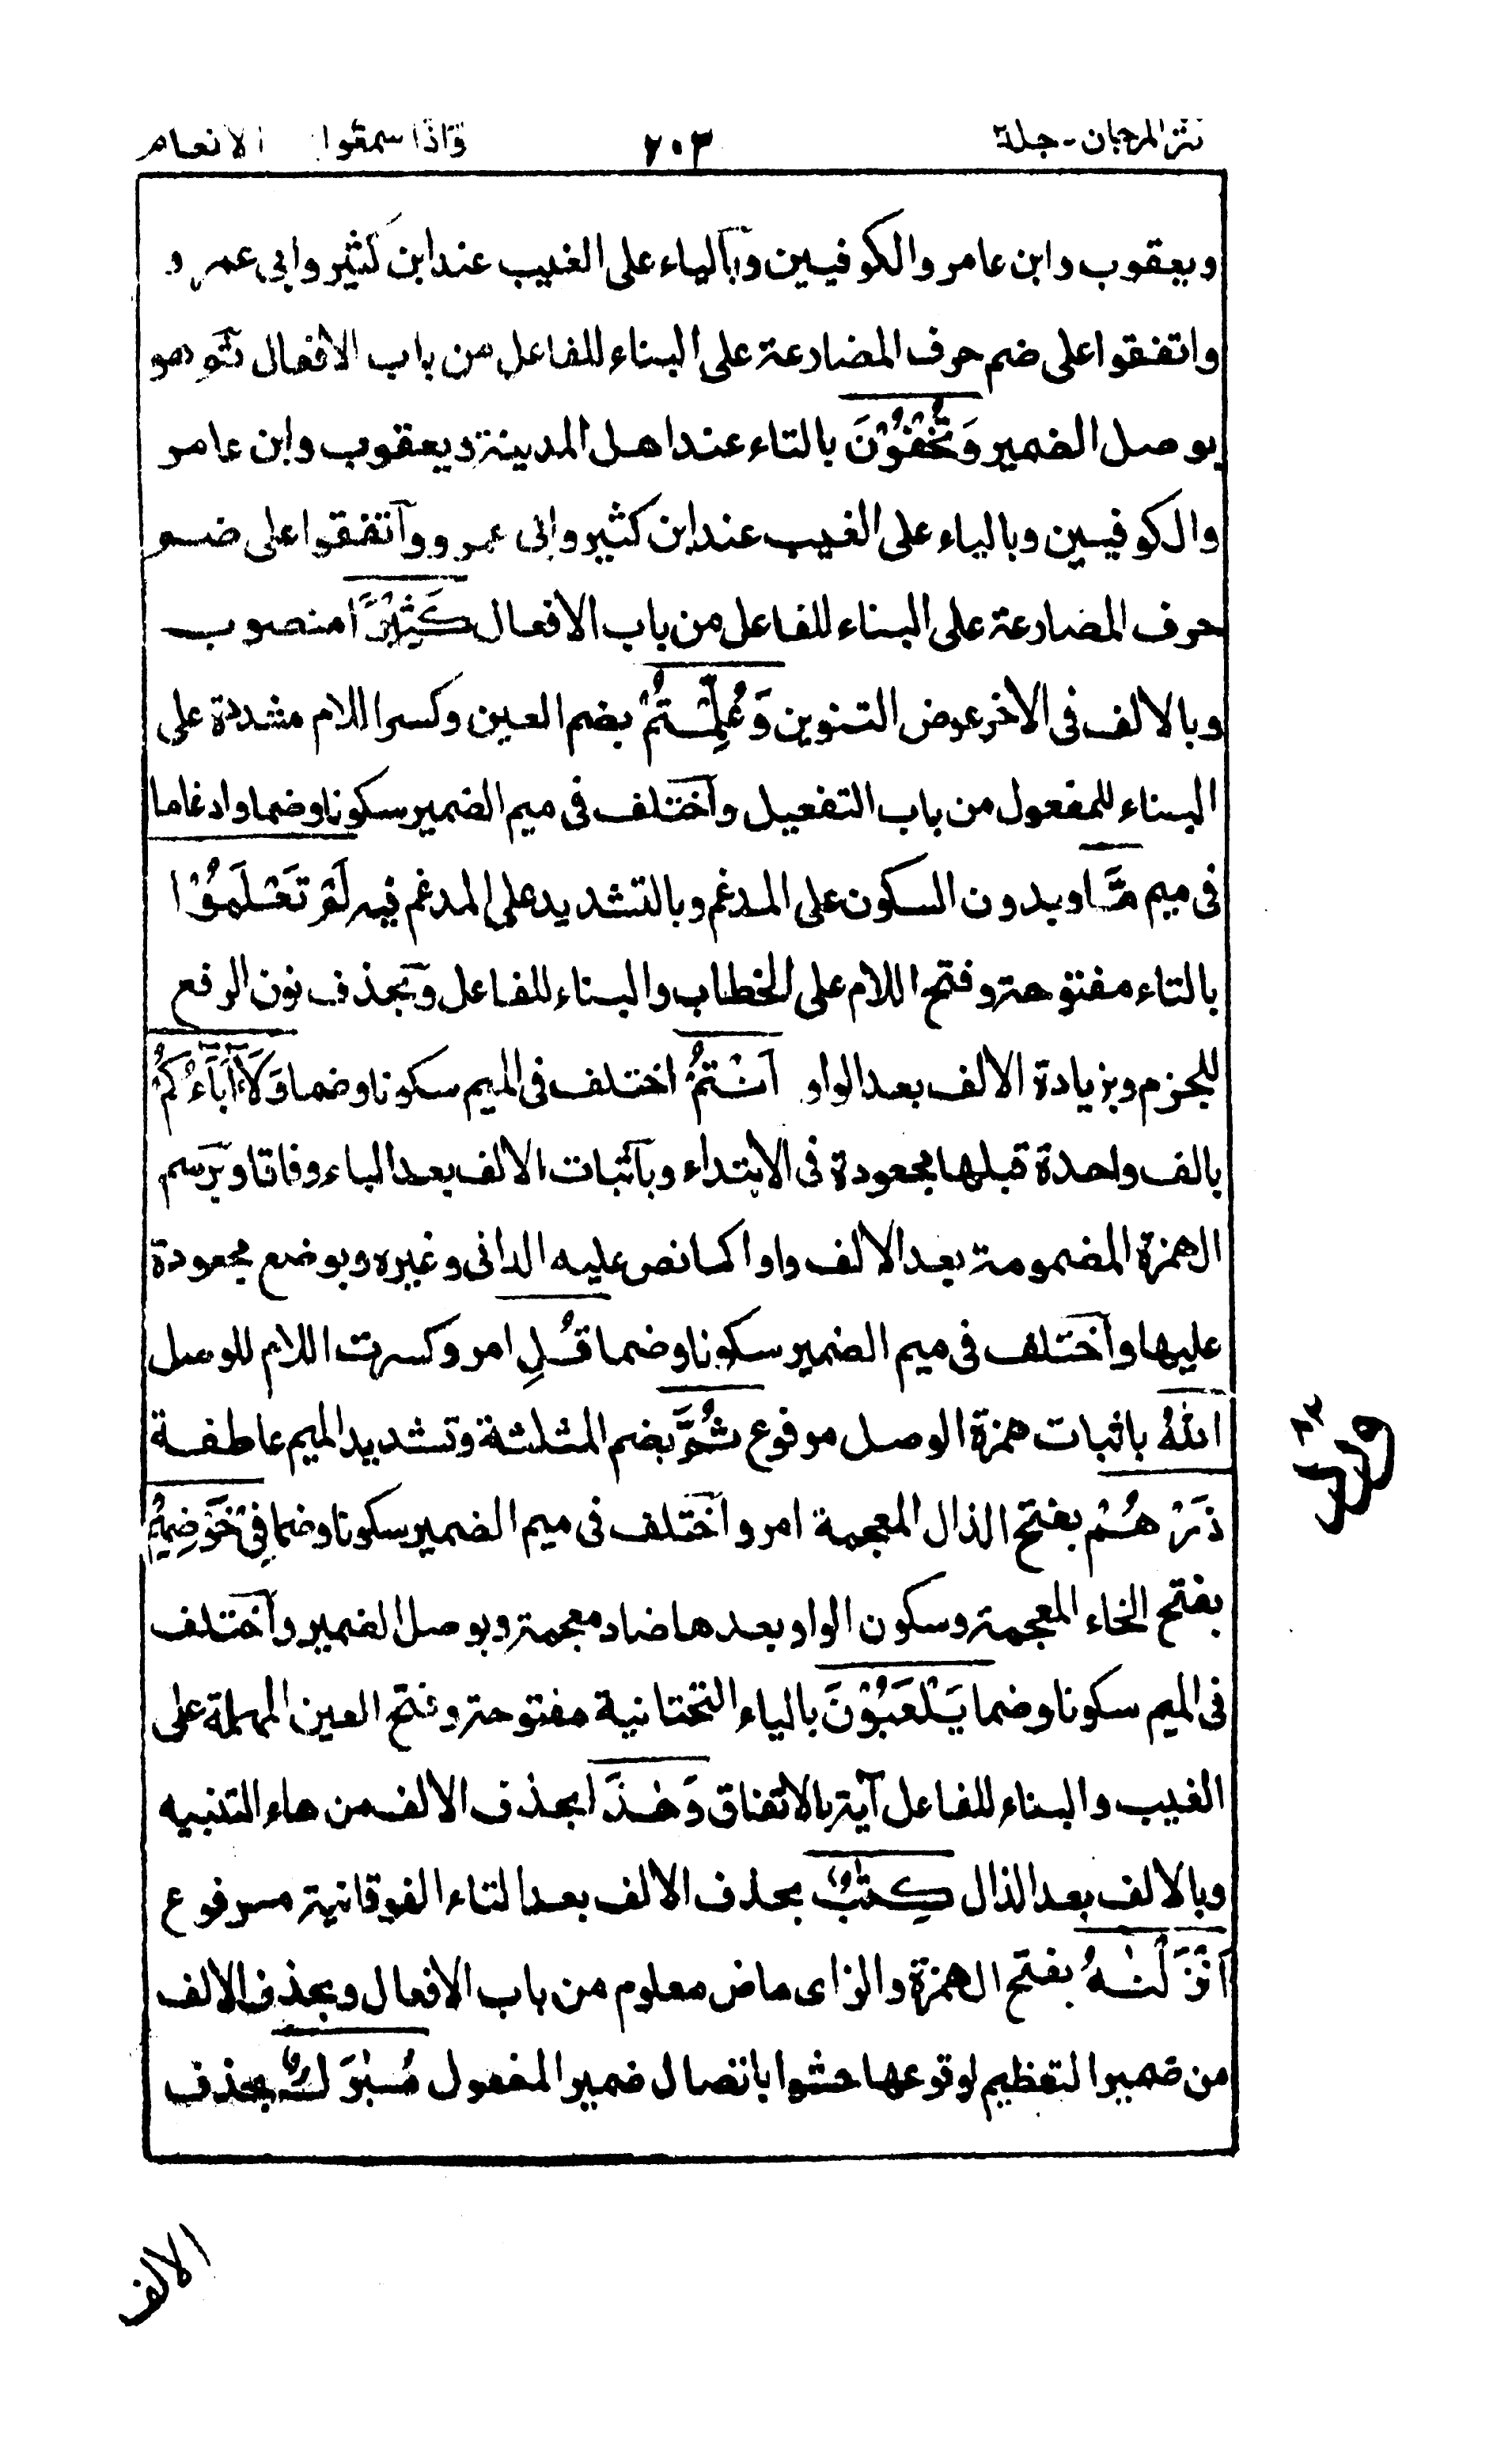 نثر المرجان - جلد ٢ ٢٠٣ واذا سمعوا الانعام
ويعقوب وابن عامر والكوفيين وبالياء على الغيب عند ابن كثير وابى عمرو
واتفقوا على ضم حرف المضارعة على البناء للفاعل من باب الافعال ثم هو
بوصل الضمير وَتُخْفُوْنَ بالتاء عند اهل المدينة ويعقوب وابن عامر
والكوفيين وبالياء على الغيب عند ابن كثير وابى عمرو واتفقوا على ضم
حرف المضارعة على البناء للفاعل من باب الافعال كَثِيْرًا منصوب
وبالالف فى الاخر عوض التنوين وَعُلِّمْتُمْ بضم العين وكسر اللام مشددة على
البناء للمفعول من باب التفعيل واختلف فى ميم الضمير سكونا وضما وادغاما
فى ميم مَّا وبدون السكون على المدغم وبالتشديد على المدغم فيه لَمْ تَعْلَمُوْا
بالتاء مفتوحة وفتح اللام على الخطاب والبناء للفاعل وبحذف نون الرفع
للجزم وبزيادة الالف بعد الواو اَنْتُمْ اختلف فى الميم سكونا وضما وَلَآ اٰبَآؤُكُمْ
بالف واحدة قبلها مجعودة فى الابتداء وباثبات الالف بعد الباء وفاقا وبرسم
الهمزة المضمومة بعد الالف واوا كما نص عليه الدانى وغيره وبوضع مجعودة
عليها واختلف فى ميم الضمير سكونا وضما قُلِ امر وكسرت اللام للوصل
اللهُ باثبات همزة الوصل مرفوع ثُمَّ بضم المثلثة وتشديد الميم عاطفة
ذَرْهُمْ بفتح الذال المعجمة امر واختلف فى ميم الضمير سكونا وضما فِىْ خَوْضِهِمْ
بفتح الخاء المعجمة وسكون الواو بعدها ضاد معجمة وبوصل الضمير واختلف
فى الميم سكونا وضما يَلْعَبُوْنَ بالياء التحتانية مفتوحة وفتح العين المهملة على
الغيب والبناء للفاعل آية بالاتفاق وَهٰذَا بحذف الالف من هاء التنبيه
وبالالف بعد الذال كِتٰبٌ بحذف الالف بعد التاء الفوقانية مرفوع
اَنْزَلْنٰهُ بفتح الهمزة والزاى ماض معلوم من باب الافعال وبحذف الالف
من ضمير التعظيم لوقوعها حشوا باتصال ضمير المفعول مُبٰرَكٌ بحذف
الالف